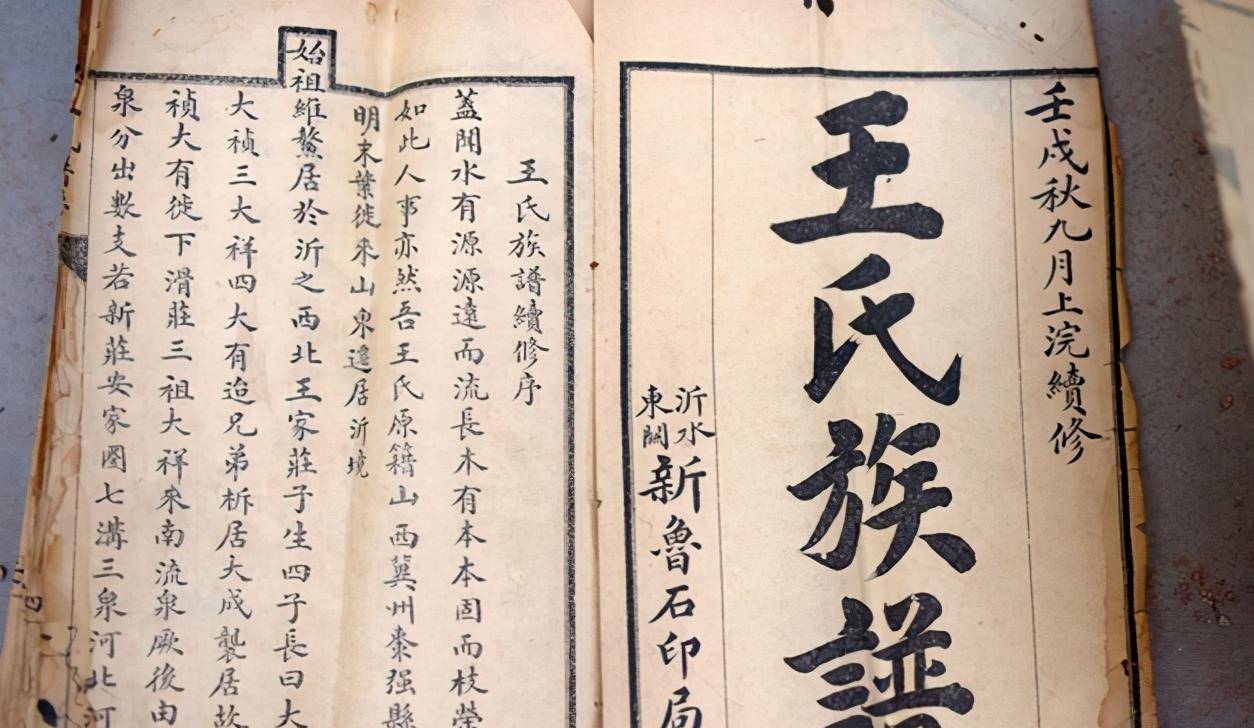 壬戌秋九月上浣續修
王氏族譜
沂水
東關
新魯石印局
王氏族譜續修序
蓋聞水有源源遠而流長木有本本固而枝榮
如此人事亦然吾王氏原籍山西冀州棗强縣
明末業徙來山東遷居沂境
始祖維鰲居於沂之西北王家莊子生四子長曰大
大禎三大祥四大有迨兄弟析居大成襲居故
禎大有徙下滑莊三祖大祥來南流泉厥後由
泉分出數支若新莊安家圈七溝三泉河北河